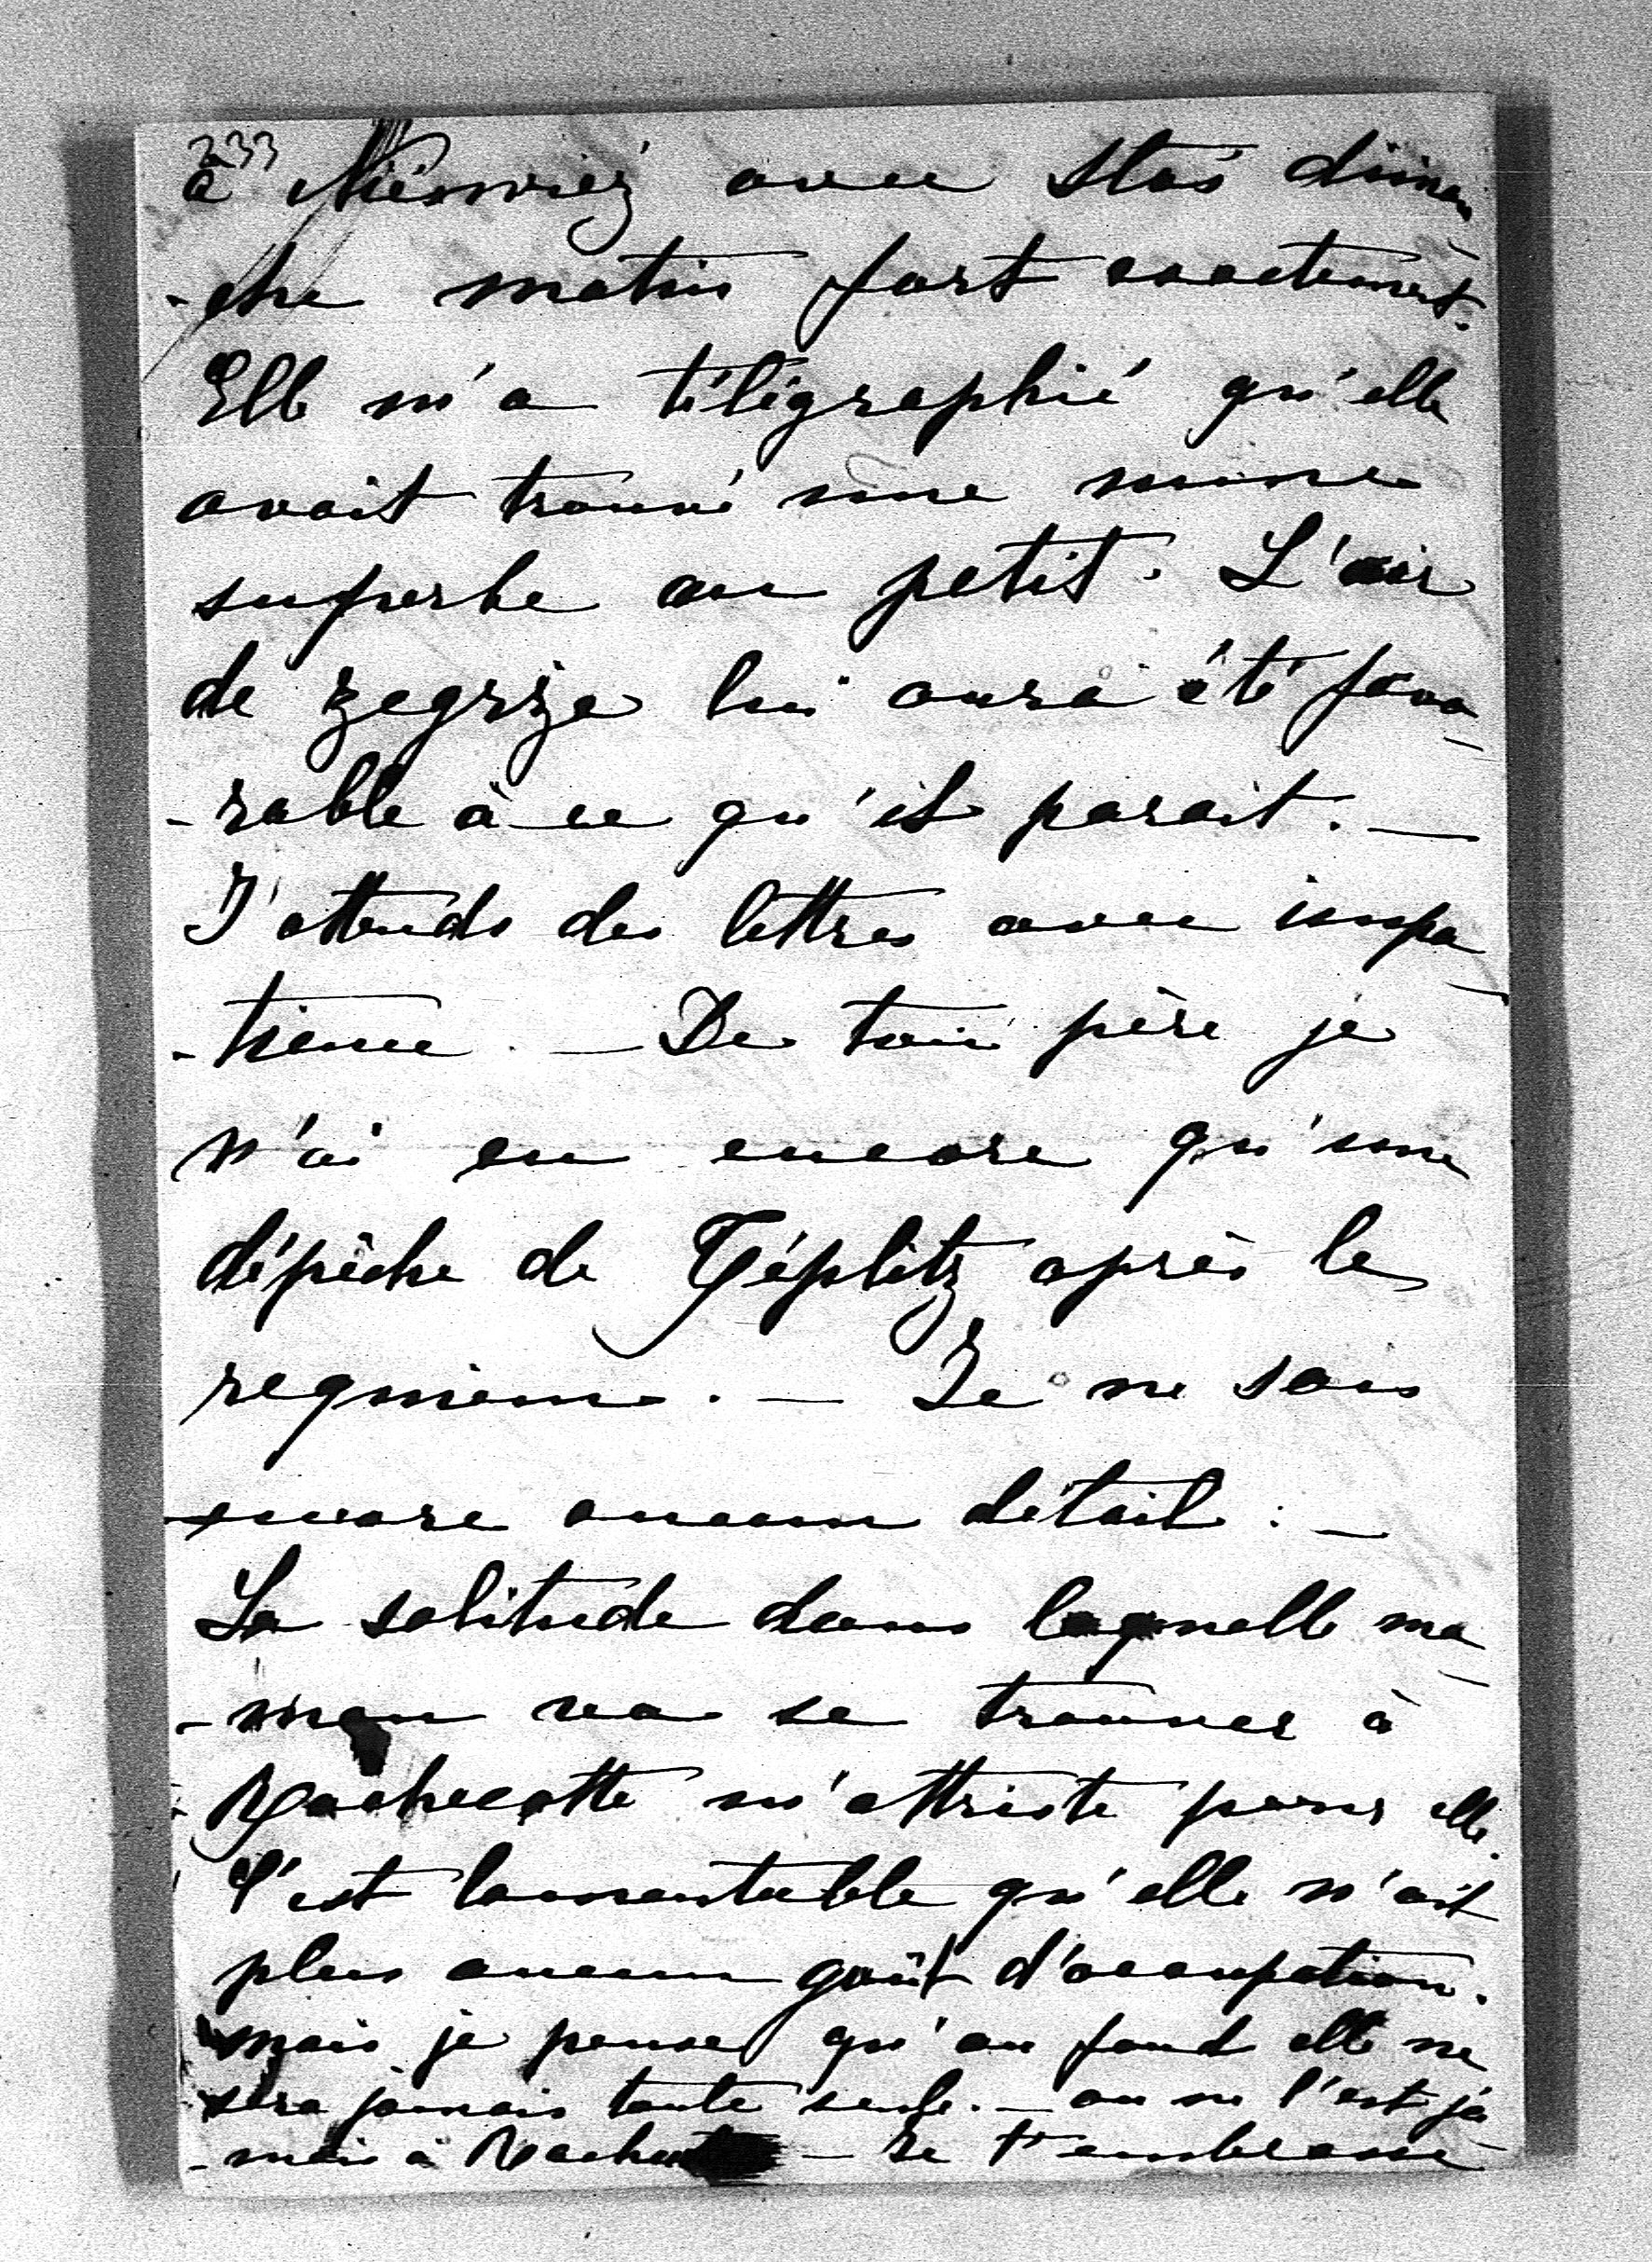 233
à Nieswiéz avec Stas diman
-che matin fort exactement.
Elle m'a télégraphié qu'elle
avait trouvé une mine
superbe au petit. L'air
de Zegrze lui aura été favo
-rable à ce qu'il parait. —
J'attends des lettres avec impa
-tience. — De ton père je
n'ai eu encore qu'une
dépêche de Téplitz après le
requiem. — Je ne sais
encore aucun détail. —
La solitude dans laquelle ma
-man va se trouver à
Rochecotte m'attriste pour elle.
C'est lamentable qu'elle n'ait
plus aucun goût d'occupation.
mais je pense qu'au fond elle ne
sera jamais toute seule. — on ne l'est ja
-mais à — Je t'embrasse